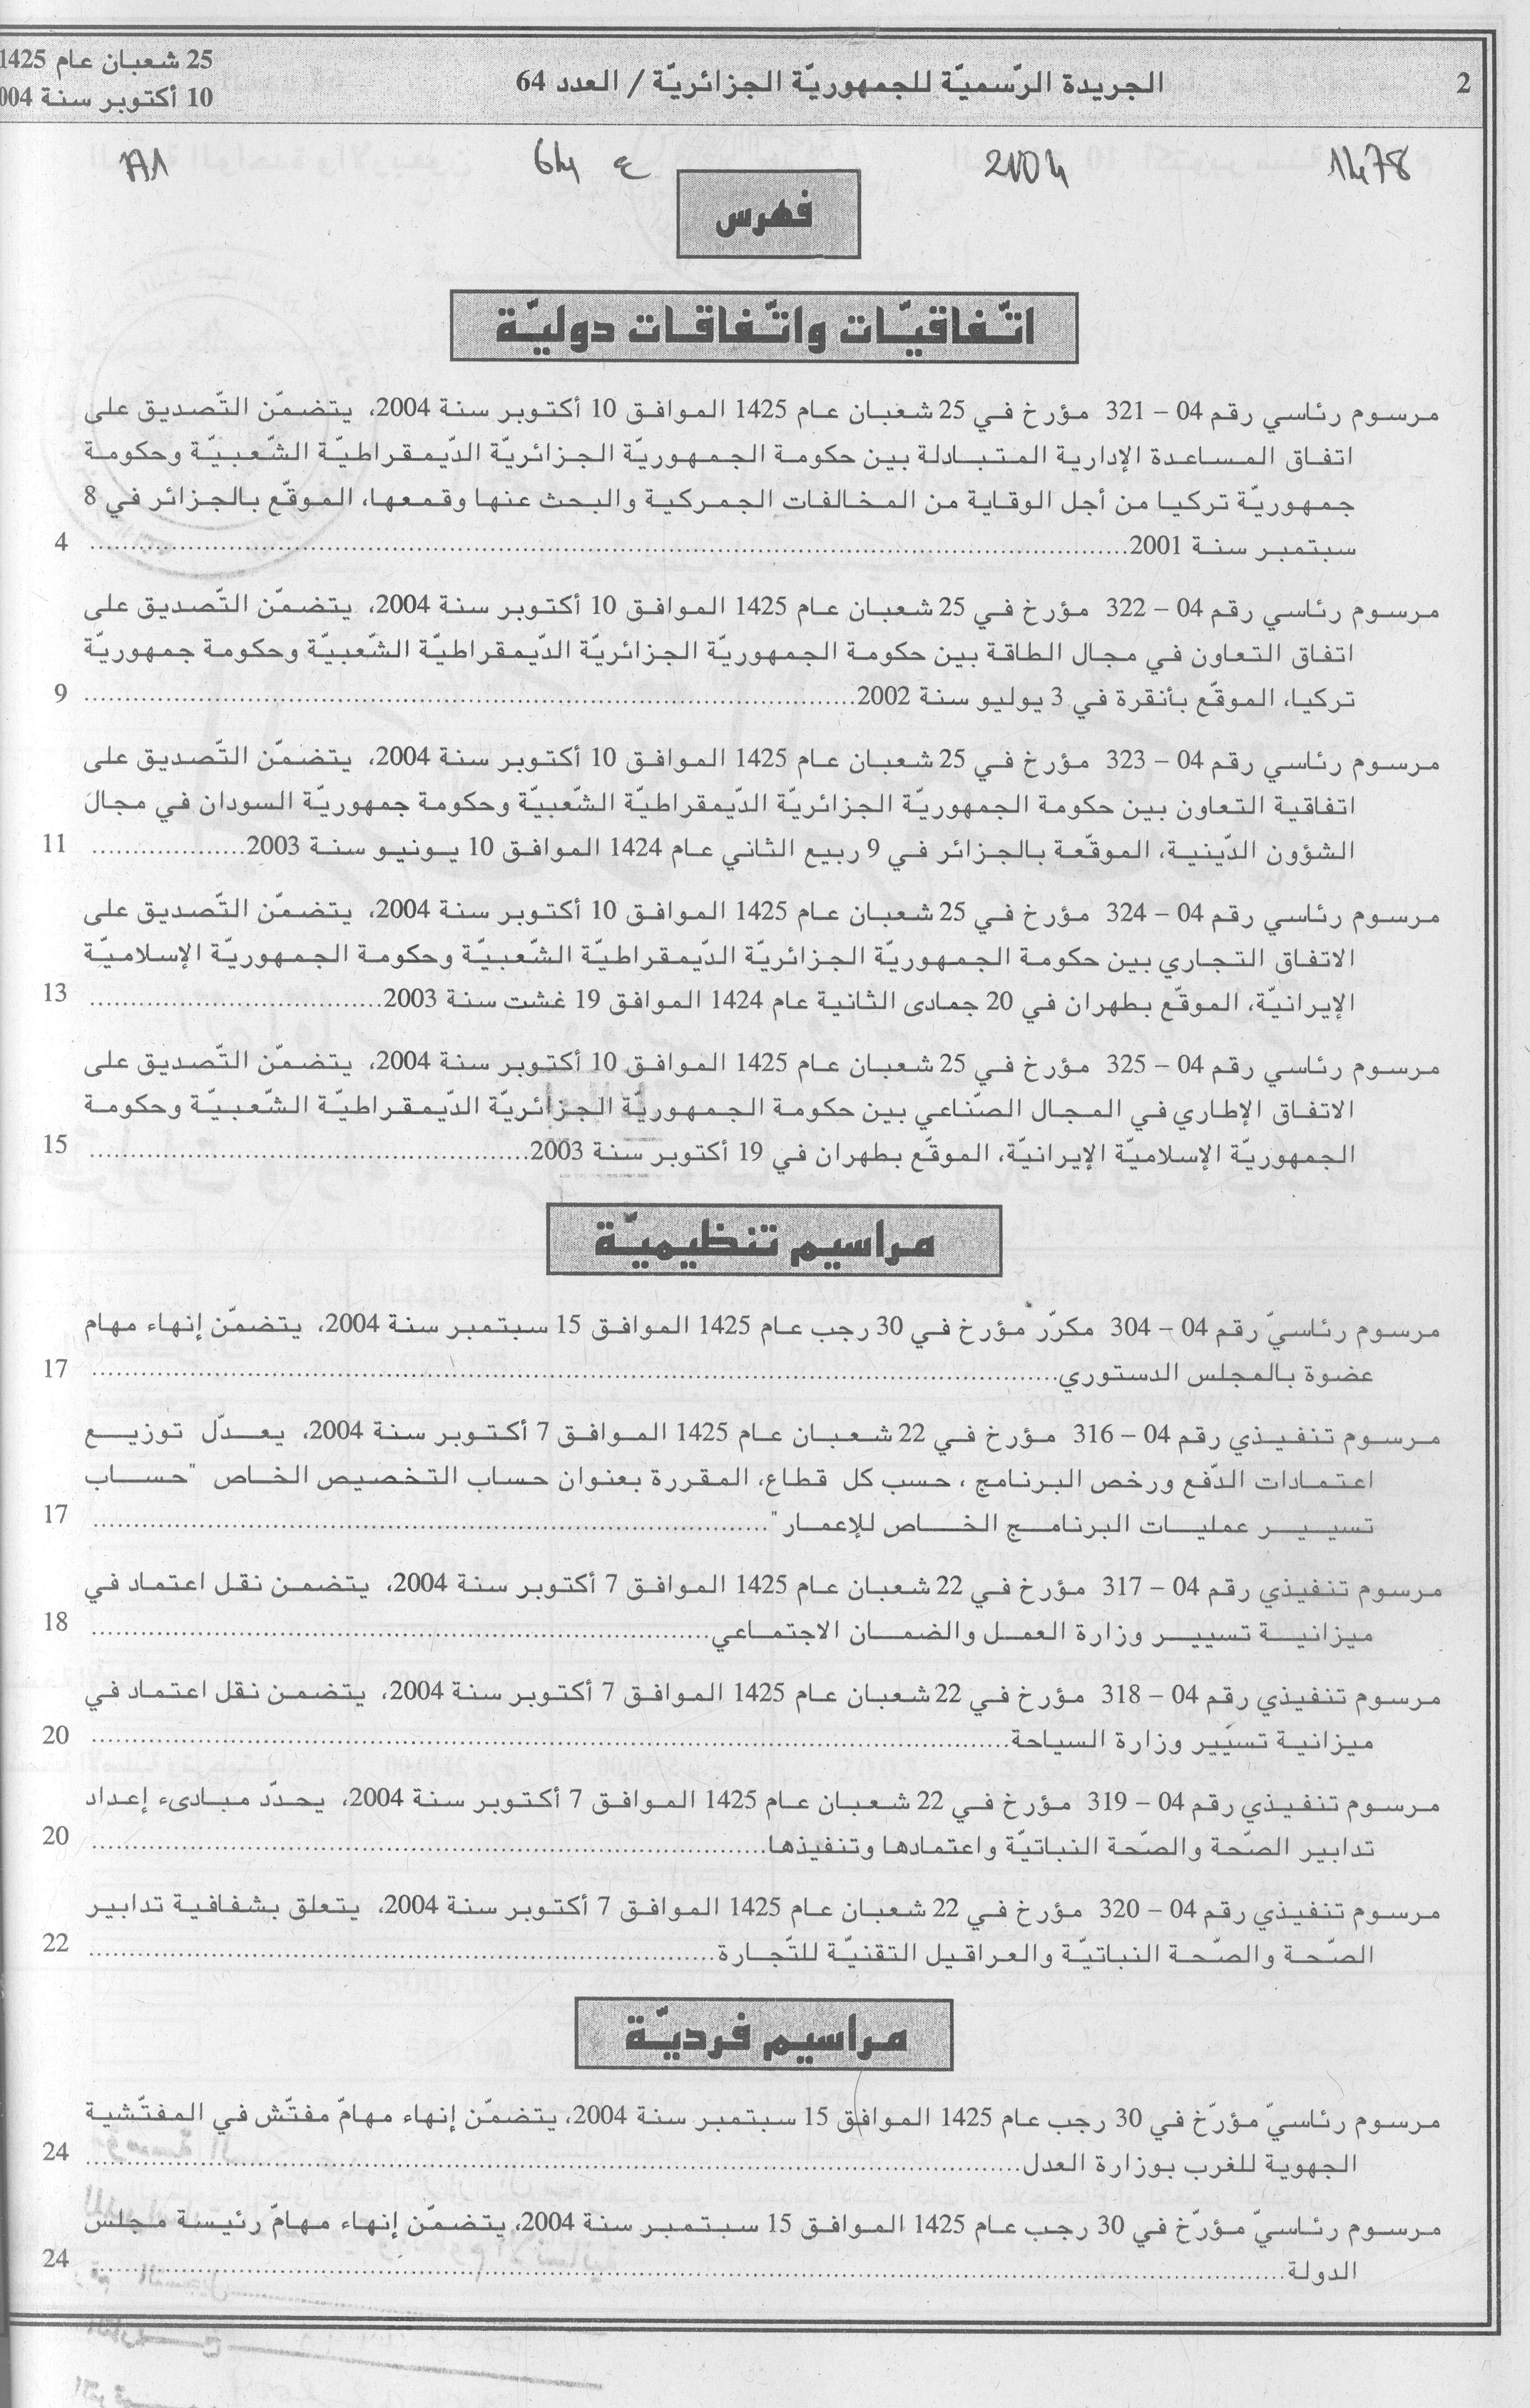 2
الجريدة الرّسميّة للجمهوريّة الجزائريّة / العدد 64
25 شعبان عام 1425
10 أكتوبر سنة 2004
1478
2004
64 ع
فهرس
اتّفاقيّات واتّفاقات دوليّة
مرسوم رئاسي رقم 04 – 321 مؤرخ في 25 شعبان عام 1425 الموافق 10 أكتوبر سنة 2004، يتضمّن التّصديق على
اتفاق المساعدة الإدارية المتبادلة بين حكومة الجمهوريّة الجزائريّة الدّيمقراطيّة الشّعبيّة وحكومة
جمهوريّة تركيا من أجل الوقاية من المخالفات الجمركية والبحث عنها وقمعها، الموقّع بالجزائر في 8
سبتمبر سنة 2001 4
مرسوم رئاسي رقم 04 – 322 مؤرخ في 25 شعبان عام 1425 الموافق 10 أكتوبر سنة 2004، يتضمّن التّصديق على
اتفاق التعاون في مجال الطاقة بين حكومة الجمهوريّة الجزائريّة الدّيمقراطيّة الشّعبيّة وحكومة جمهوريّة
تركيا، الموقّع بأنقرة في 3 يوليو سنة 2002 9
مرسوم رئاسي رقم 04 – 323 مؤرخ في 25 شعبان عام 1425 الموافق 10 أكتوبر سنة 2004، يتضمّن التّصديق على
اتفاقية التعاون بين حكومة الجمهوريّة الجزائريّة الدّيمقراطيّة الشّعبيّة وحكومة جمهوريّة السودان في مجال
الشؤون الدّينية، الموقّعة بالجزائر في 9 ربيع الثاني عام 1424 الموافق 10 يونيو سنة 2003 11
مرسوم رئاسي رقم 04 – 324 مؤرخ في 25 شعبان عام 1425 الموافق 10 أكتوبر سنة 2004، يتضمّن التّصديق على
الاتفاق التجاري بين حكومة الجمهوريّة الجزائريّة الدّيمقراطيّة الشّعبيّة وحكومة الجمهوريّة الإسلاميّة
الإيرانيّة، الموقّع بطهران في 20 جمادى الثانية عام 1424 الموافق 19 غشت سنة 2003 13
مرسوم رئاسي رقم 04 – 325 مؤرخ في 25 شعبان عام 1425 الموافق 10 أكتوبر سنة 2004، يتضمّن التّصديق على
الاتفاق الإطاري في المجال الصّناعي بين حكومة الجمهوريّة الجزائريّة الدّيمقراطيّة الشّعبيّة وحكومة
الجمهوريّة الإسلاميّة الإيرانيّة، الموقّع بطهران في 19 أكتوبر سنة 2003 15
مراسيم تنظيميّة
مرسوم رئاسيّ رقم 04 – 304 مكرّر مؤرخ في 30 رجب عام 1425 الموافق 15 سبتمبر سنة 2004، يتضمّن إنهاء مهام
عضوة بالمجلس الدستوري 17
مرسوم تنفيذي رقم 04 – 316 مؤرخ في 22 شعبان عام 1425 الموافق 7 أكتوبر سنة 2004، يعدّل توزيع
اعتمادات الدّفع ورخص البرنامج ، حسب كل قطاع، المقررة بعنوان حساب التخصيص الخاص "حساب
تسيير عمليات البرنامج الخاص للإعمار" 17
مرسوم تنفيذي رقم 04 – 317 مؤرخ في 22 شعبان عام 1425 الموافق 7 أكتوبر سنة 2004، يتضمن نقل اعتماد في
ميزانية تسيير وزارة العمل والضمان الاجتماعي 18
مرسوم تنفيذي رقم 04 – 318 مؤرخ في 22 شعبان عام 1425 الموافق 7 أكتوبر سنة 2004، يتضمن نقل اعتماد في
ميزانية تسيير وزارة السياحة 20
مرسوم تنفيذي رقم 04 – 319 مؤرخ في 22 شعبان عام 1425 الموافق 7 أكتوبر سنة 2004، يحدّد مبادىء إعداد
تدابير الصّحة والصّحة النباتيّة واعتمادها وتنفيذها 20
مرسوم تنفيذي رقم 04 – 320 مؤرخ في 22 شعبان عام 1425 الموافق 7 أكتوبر سنة 2004، يتعلق بشفافية تدابير
الصّحة والصّحة النباتيّة والعراقيل التقنيّة للتّجارة 22
مراسيم فرديّة
مرسوم رئاسيّ مؤرّخ في 30 رجب عام 1425 الموافق 15 سبتمبر سنة 2004، يتضمّن إنهاء مهامّ مفتّش في المفتّشية
الجهوية للغرب بوزارة العدل 24
مرسوم رئاسيّ مؤرّخ في 30 رجب عام 1425 الموافق 15 سبتمبر سنة 2004، يتضمّن إنهاء مهامّ رئيسة مجلس
الدولة 24